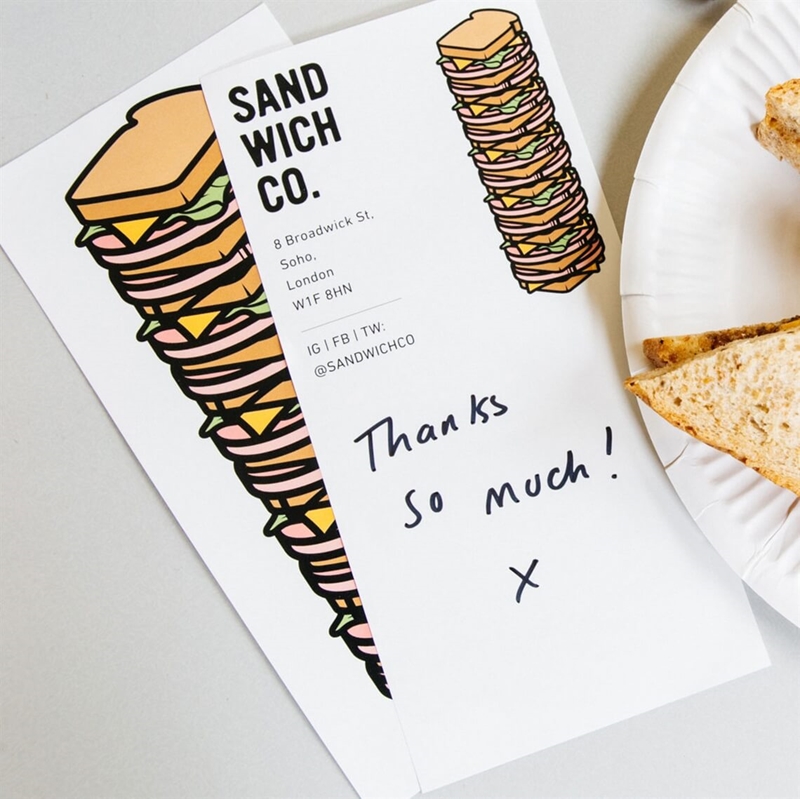 SAND
WICH
CO.
8 Broadwick St,
Soho,
London
W1F 8HN
IG | FB | TW:
@SANDWICHCO
Thanks
so much!
x